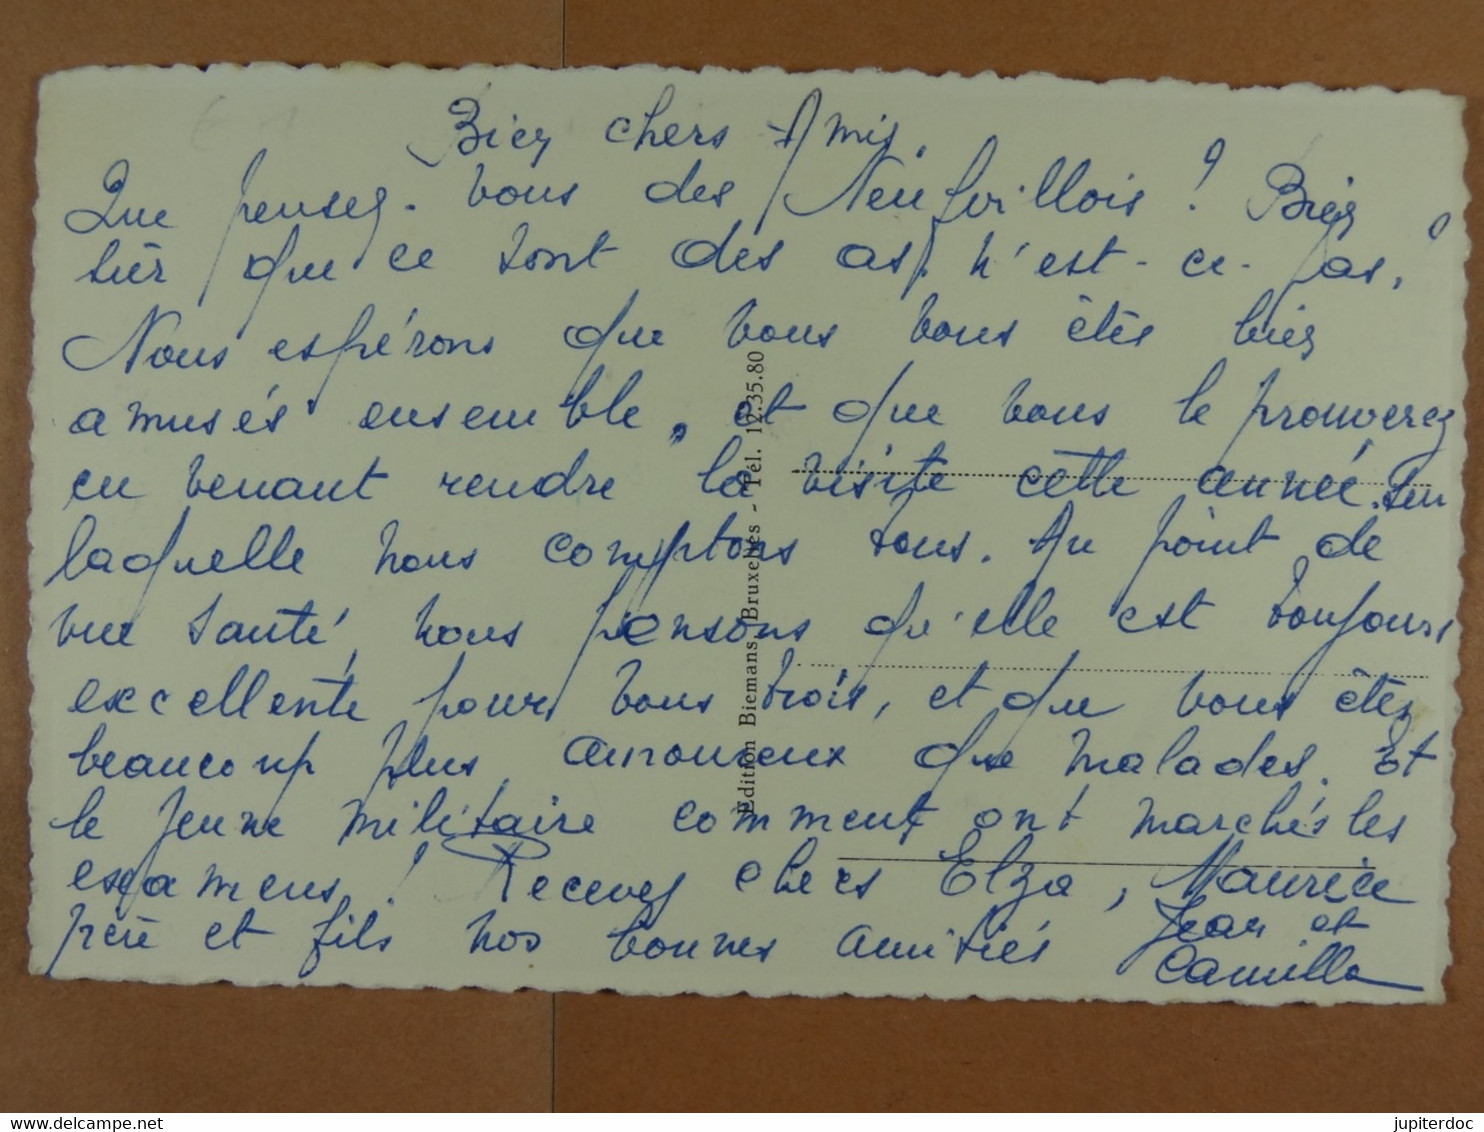 Bien chers Amis,
Que pensez-vous des Neufvillois ? Bien
sûr que ce sont des as, n'est-ce-pas,
Nous espérons que vous vous êtes bien
amusés ensemble, et que vous le prouverez
en venant rendre la visite cette année. Sur
laquelle nous comptons tous. Au point de
vue santé, nous pensons qu'elle est toujours
excellente pour vous trois, et que vous êtes
beaucoup plus amoureux que malades. Et
le jeune militaire comment ont marchés les
examens ! Recevez chers Elza, Maurice
père et fils nos bonnes amitiés Jean et
Camilla
Edition Biemans, Bruxelles - Tél. 12.35.80
jupiterdoc